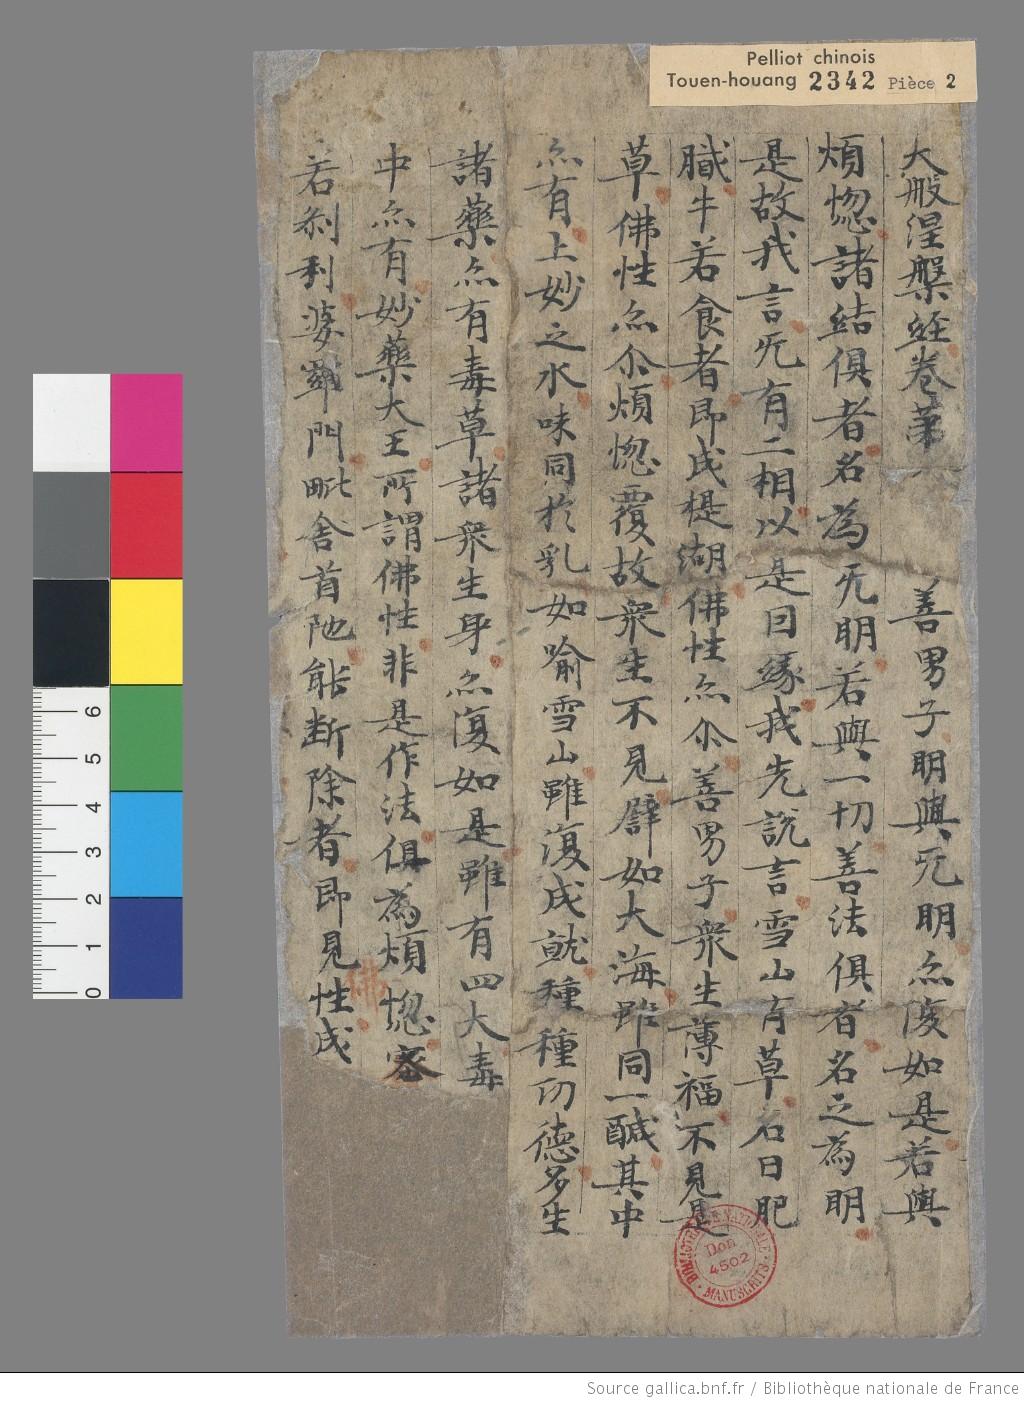 Pelliot chinois
Touen-houang 2342 Pièce 2
大般涅槃經卷第 善男子明與旡明亦復如是若與
煩惚諸結俱者名為旡明若與一切善法俱者名之為明
是故我言旡有二相以是因緣我先說言雪山有草名曰肥
膱牛若食者即成醍湖佛性亦尒善男子衆生薄福不見是
草佛性亦尒煩惚覆故衆生不見譬如大海雖同一醎其中
亦有上妙之水味同扵乳如喻雪山雖復成就種種㓛德多生
諸藥亦有毒草諸衆生身亦復如是雖有四大毒
中亦有妙藥大王所謂佛性非是作法俱為煩惚客
若刹利婆羅門毗舍首陁能断除者即見性成
佛
BIBLIOTHÈQUE NATIONALE
Don
4502
MANUSCRITS
6
5
4
3
2
1
0
Source gallica.bnf.fr / Bibliothèque nationale de France